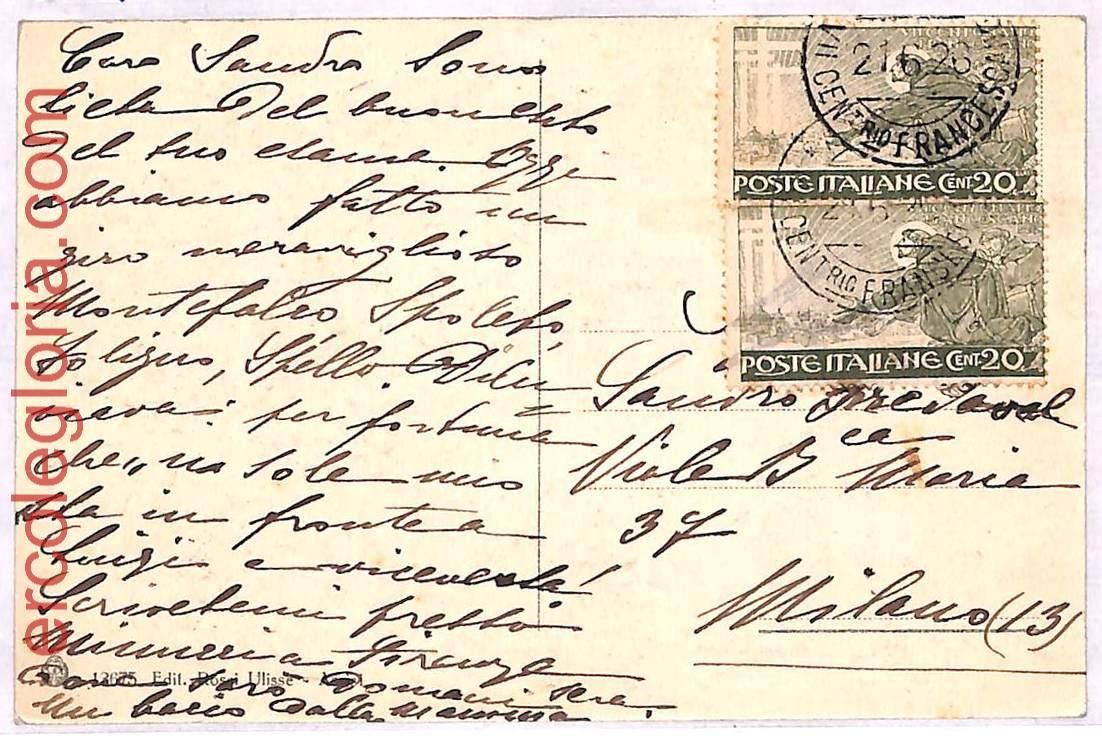 Cara Sandra Sono
lieta del buon esito
del tuo esame Oggi
abbiamo fatto un
giro meraviglioso
Montefalco Spoleto,
Foligno, Spello.
per fortuna
che sole mio
sta in fronte a
Luigi e viceversa!
Scrivetemi presto
Firenze
sarò domani sera
Un bacio dalla Mammma
13675 Edit. Rossi Ulisse -
21.6.26
CENTRIO FRANCESCANO
POSTE ITALIANE CENT 20
CENTRIO FRANCES
POSTE ITALIANE CENT 20
Sandro
Viale B Maria
37
Milano (13)
ercolegloria.com